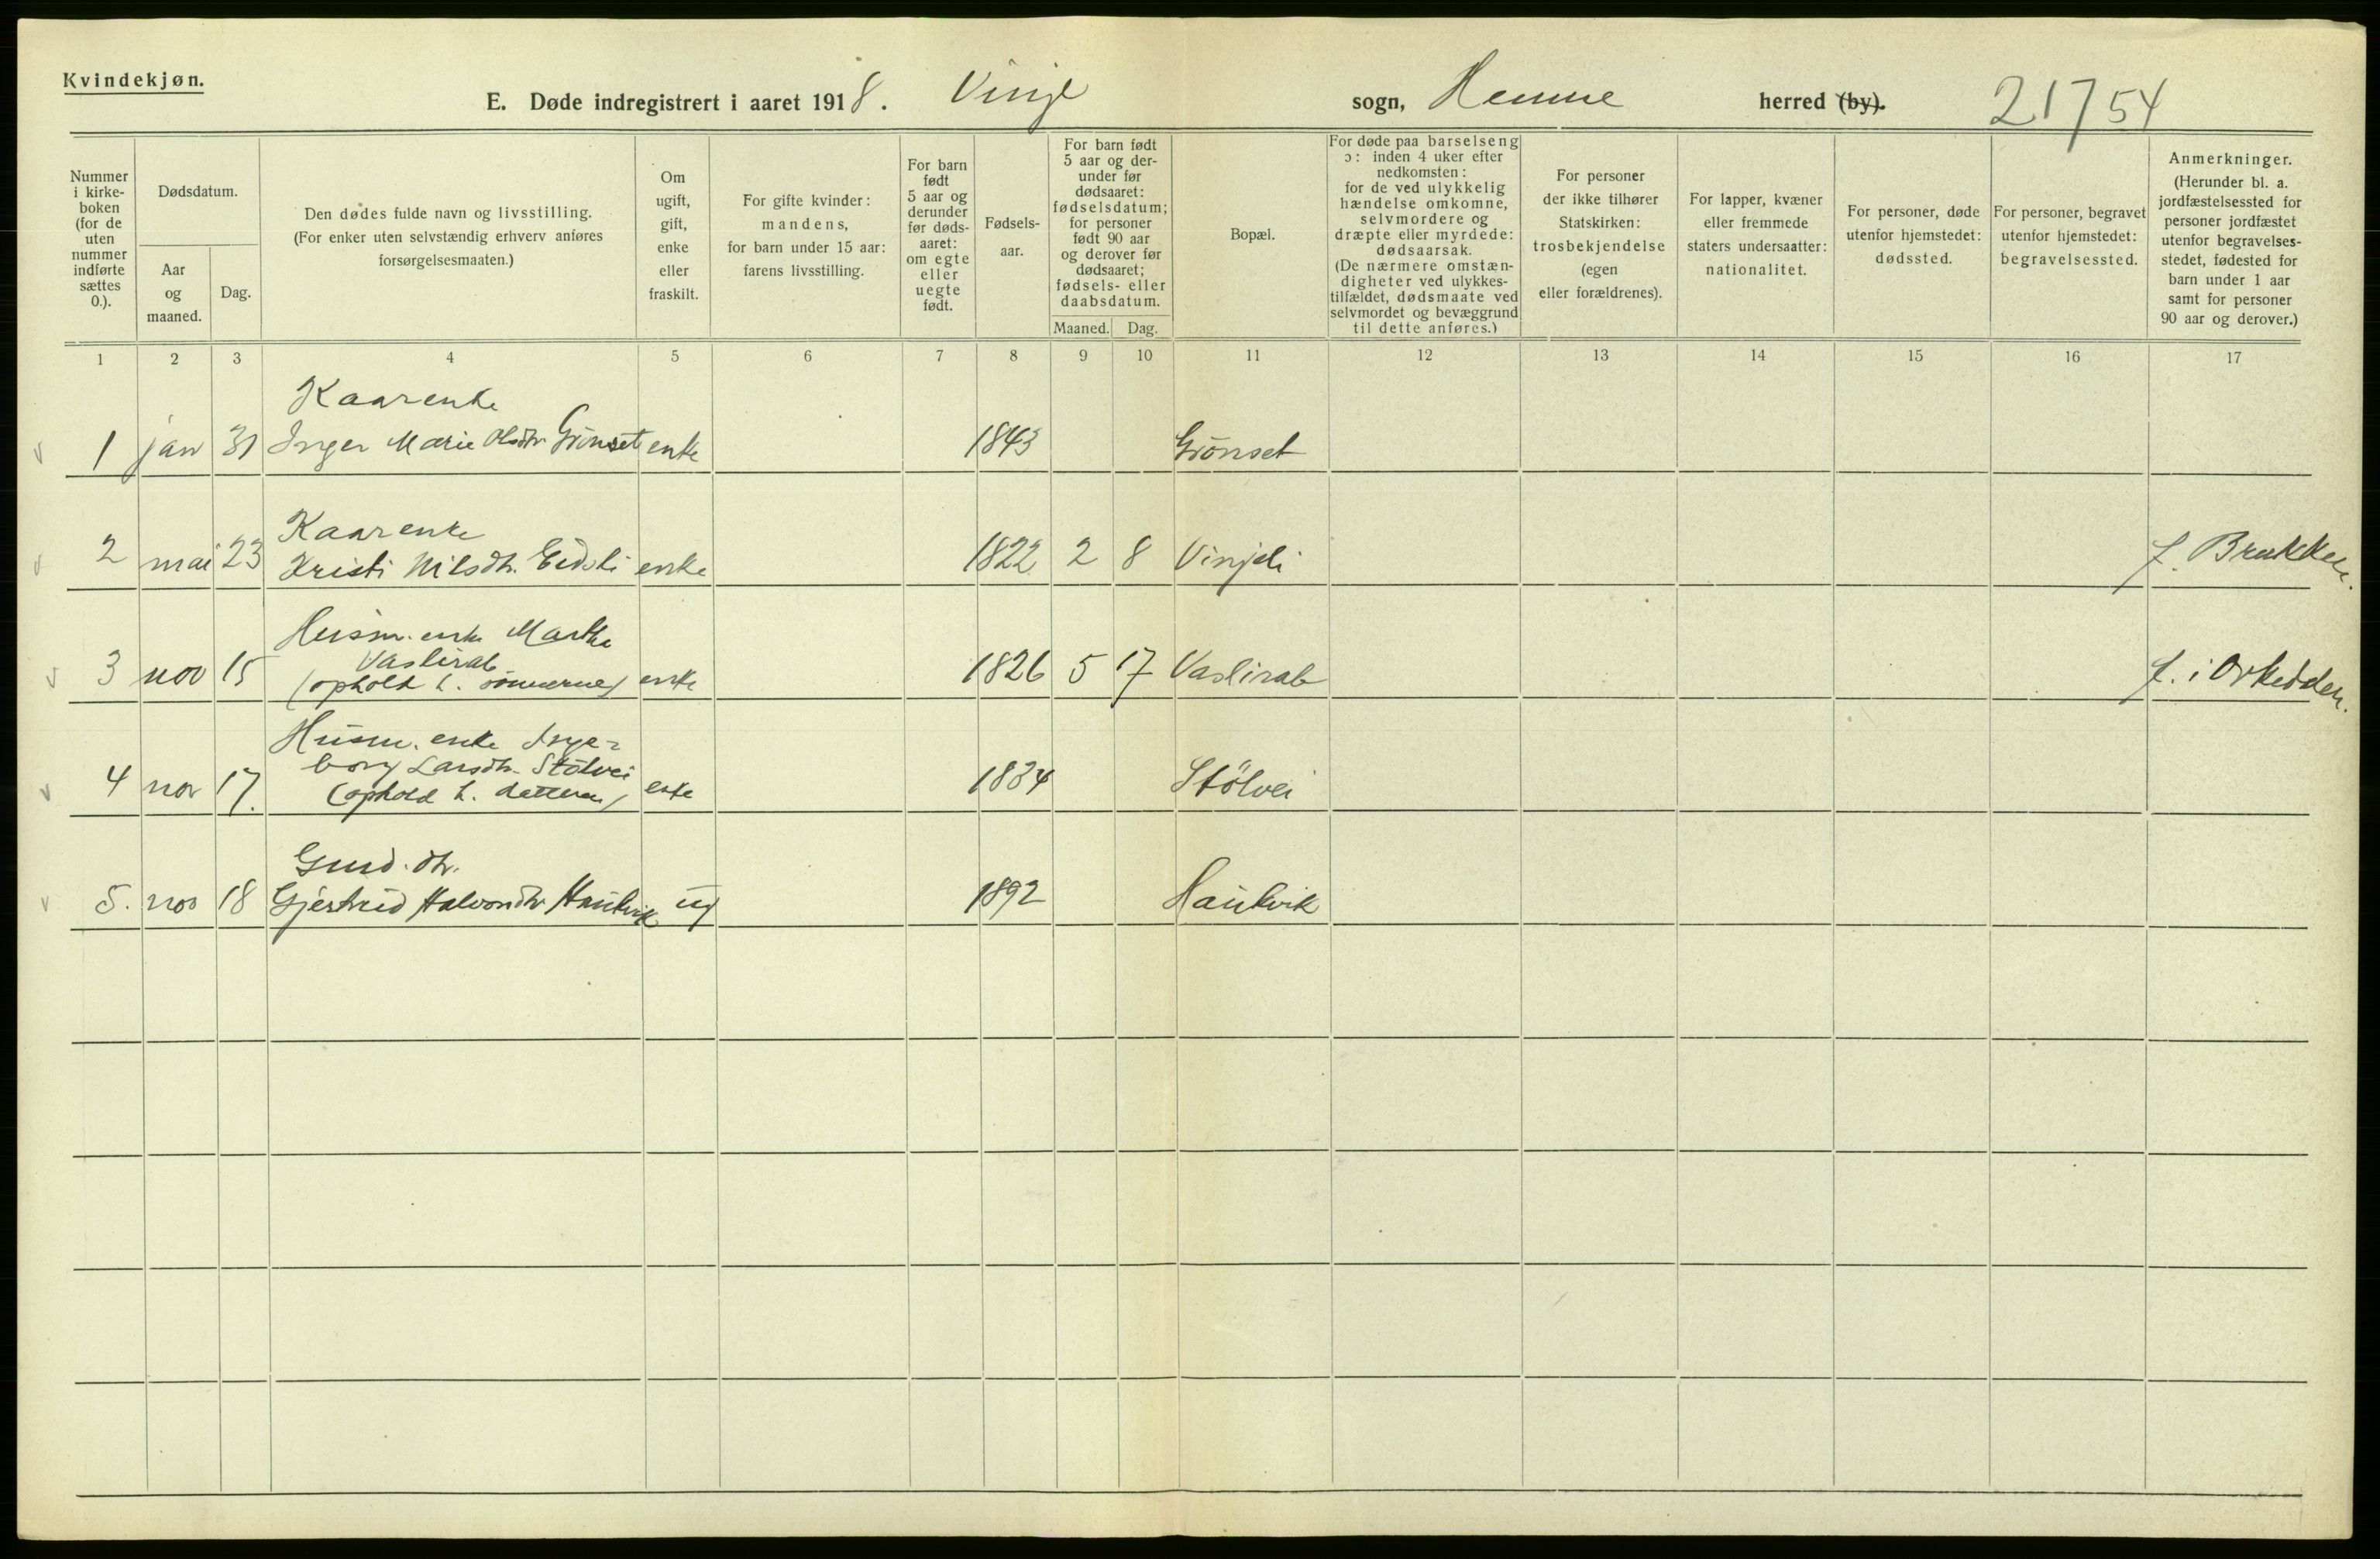 Kvindekjøn.
E. Døde indregistrert i aaret 1918. Vinje sogn, Hemne herred (by). 21754
Nummer i kirkeboken (for de uten nummer indførte sættes 0.).
Dødsdatum.
Aar og maaned.
Dag.
Den dødes fulde navn og livsstilling.
(For enker uten selvstændig erhverv anføres
forsørgelsesmaaten.)
Om ugift, gift, enke eller fraskilt.
For gifte kvinder:
mandens,
for barn under 15 aar:
farens livsstilling.
For barn født 5 aar og derunder før dødsaaret: om egte eller uegte født.
Fødselsaar.
For barn født 5 aar og derunder før dødsaaret: fødselsdatum; for personer født 90 aar og derover før dødsaaret; fødsels- eller daabsdatum.
Maaned. Dag.
Bopæl.
For døde paa barselseng ɔ: inden 4 uker efter nedkomsten: for de ved ulykkelig hændelse omkomne, selvmordere og dræpte eller myrdede: dødsaarsak. (De nærmere omstændigheter ved ulykkestilfældet, dødsmaate ved selvmordet og bevæggrund til dette anføres.)
For personer der ikke tilhører Statskirken: trosbekjendelse (egen eller forældrenes).
For lapper, kvæner eller fremmede staters undersaatter: nationalitet.
For personer, døde utenfor hjemstedet: dødssted.
For personer, begravet utenfor hjemstedet: begravelsessted.
Anmerkninger. (Herunder bl. a. jordfæstelsessted for personer jordfæstet utenfor begravelsesstedet, fødested for barn under 1 aar samt for personer 90 aar og derover.)
1 2 3 4 5 6 7 8 9 10 11 12 13 14 15 16 17
Kaarenke
1 jan 31 Inger Marie Olsdtr Grönset enke 1843 Grönset
Kaarenke
2 mai 23 Kristi Nilsdtr. Eidsli enke 1822 2 8 Vinjeli f. Brækken.
Husm. enke Martha
Vaslirab
3 nov 15 (ophold h. sönnerne) enke 1826 5 17 Vaslirab f. i Orkedalen.
Husm. enke Inge-
borg Larsdtr. Stölvei
4 nov 17. (ophold h. datteren) enke 1834 Stölvei
Gmd. dtr.
5. nov 18 Gjertrud Halvorsdtr Haukvik ug 1892 Haukvik